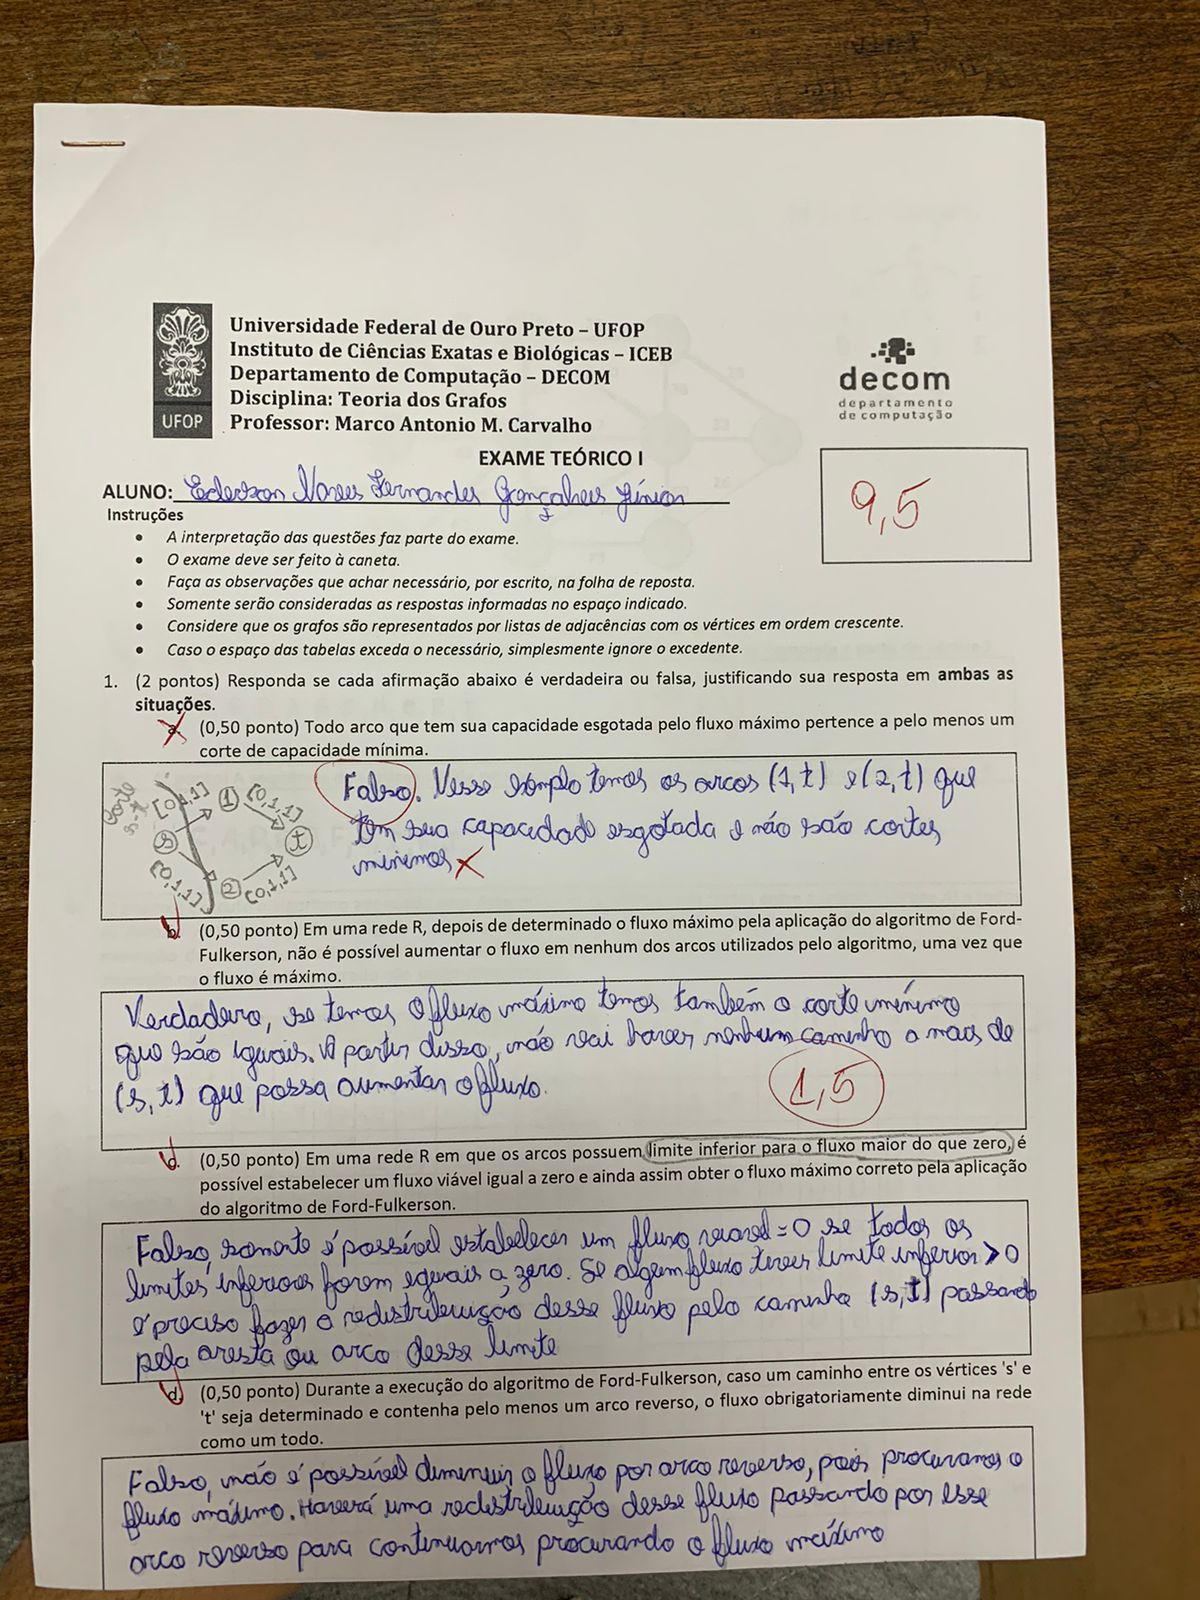 Universidade Federal de Ouro Preto – UFOP
Instituto de Ciências Exatas e Biológicas – ICEB
Departamento de Computação – DECOM
Disciplina: Teoria dos Grafos
Professor: Marco Antonio M. Carvalho
UFOP
decom
departamento
de computação
EXAME TEÓRICO I
9,5
ALUNO: Ederson Fernandes Gonçalves Júnior
Instruções
• A interpretação das questões faz parte do exame.
• O exame deve ser feito à caneta.
• Faça as observações que achar necessário, por escrito, na folha de reposta.
• Somente serão consideradas as respostas informadas no espaço indicado.
• Considere que os grafos são representados por listas de adjacências com os vértices em ordem crescente.
• Caso o espaço das tabelas exceda o necessário, simplesmente ignore o excedente.
1. (2 pontos) Responda se cada afirmação abaixo é verdadeira ou falsa, justificando sua resposta em ambas as
situações.
a. (0,50 ponto) Todo arco que tem sua capacidade esgotada pelo fluxo máximo pertence a pelo menos um
corte de capacidade mínima.
corte
s-t
[0,1,1] 1 [0,1,1]
s t
[0,1,1] 2 [0,1,1]
Falso. Nesse exmplo temos os arcos (1,t) e (2,t) que
tem sua capacidade esgotada e não são cortes
minimos
b. (0,50 ponto) Em uma rede R, depois de determinado o fluxo máximo pela aplicação do algoritmo de Ford-
Fulkerson, não é possível aumentar o fluxo em nenhum dos arcos utilizados pelo algoritmo, uma vez que
o fluxo é máximo.
Verdadeiro, se temos o fluxo máximo temos também o corte minimo
que são iguais. A partir disso, não vai haver nenhum caminho a mais de
(s,t) que possa aumentar o fluxo.
1,5
c. (0,50 ponto) Em uma rede R em que os arcos possuem limite inferior para o fluxo maior do que zero, é
possível estabelecer um fluxo viável igual a zero e ainda assim obter o fluxo máximo correto pela aplicação
do algoritmo de Ford-Fulkerson.
Falso, somente é possível estabelecer um fluxo = 0 se todos os
limites inferiores forem iguais a zero. Se algum fluxo tiver limite inferior > 0
é preciso fazer a redistribuição desse fluxo pelo caminho (s,t) passando
pela aresta ou arco desse limite
d. (0,50 ponto) Durante a execução do algoritmo de Ford-Fulkerson, caso um caminho entre os vértices 's' e
't' seja determinado e contenha pelo menos um arco reverso, o fluxo obrigatoriamente diminui na rede
como um todo.
Falso, não é possível diminuir o fluxo por arco reverso, pois procuramos o
fluxo máximo. Haverá uma redistribuição desse fluxo passando por esse
arco reverso para continuarmos procurando o fluxo máximo